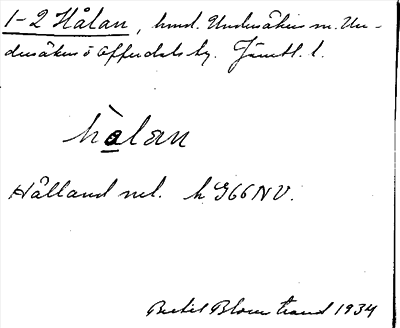 1-2 Hålan, hmd. Undersåkers sn. Un-
dersåkers o Offerdals tg. Jämtl. l.
hòlan
Hålland nel. h 966 NV.
Bertil Blomstrand 1934